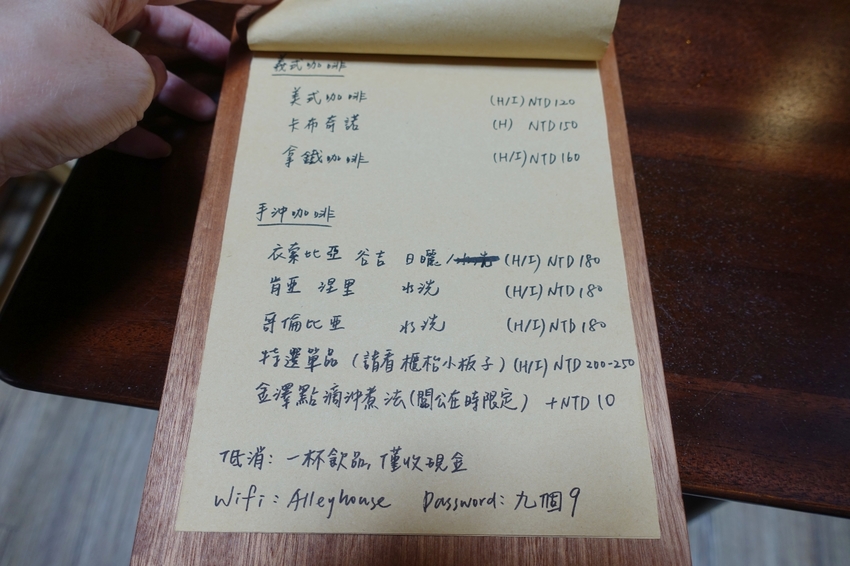 義式咖啡
美式咖啡 (H/I) NTD 120
卡布奇諾 (H) NTD 150
拿鐵咖啡 (H/I) NTD 160
手沖咖啡
衣索比亞 谷吉 日曬/水洗 (H/I) NTD 180
肯亞 涅里 水洗 (H/I) NTD 180
哥倫比亞 水洗 (H/I) NTD 180
特選單品 (請看櫃枱小板子) (H/I) NTD 200-250
金澤點滴沖煮法 (闆公在時限定) +NTD 10
低消: 一杯飲品, 僅收現金
Wifi: Alleyhouse Password: 九個9